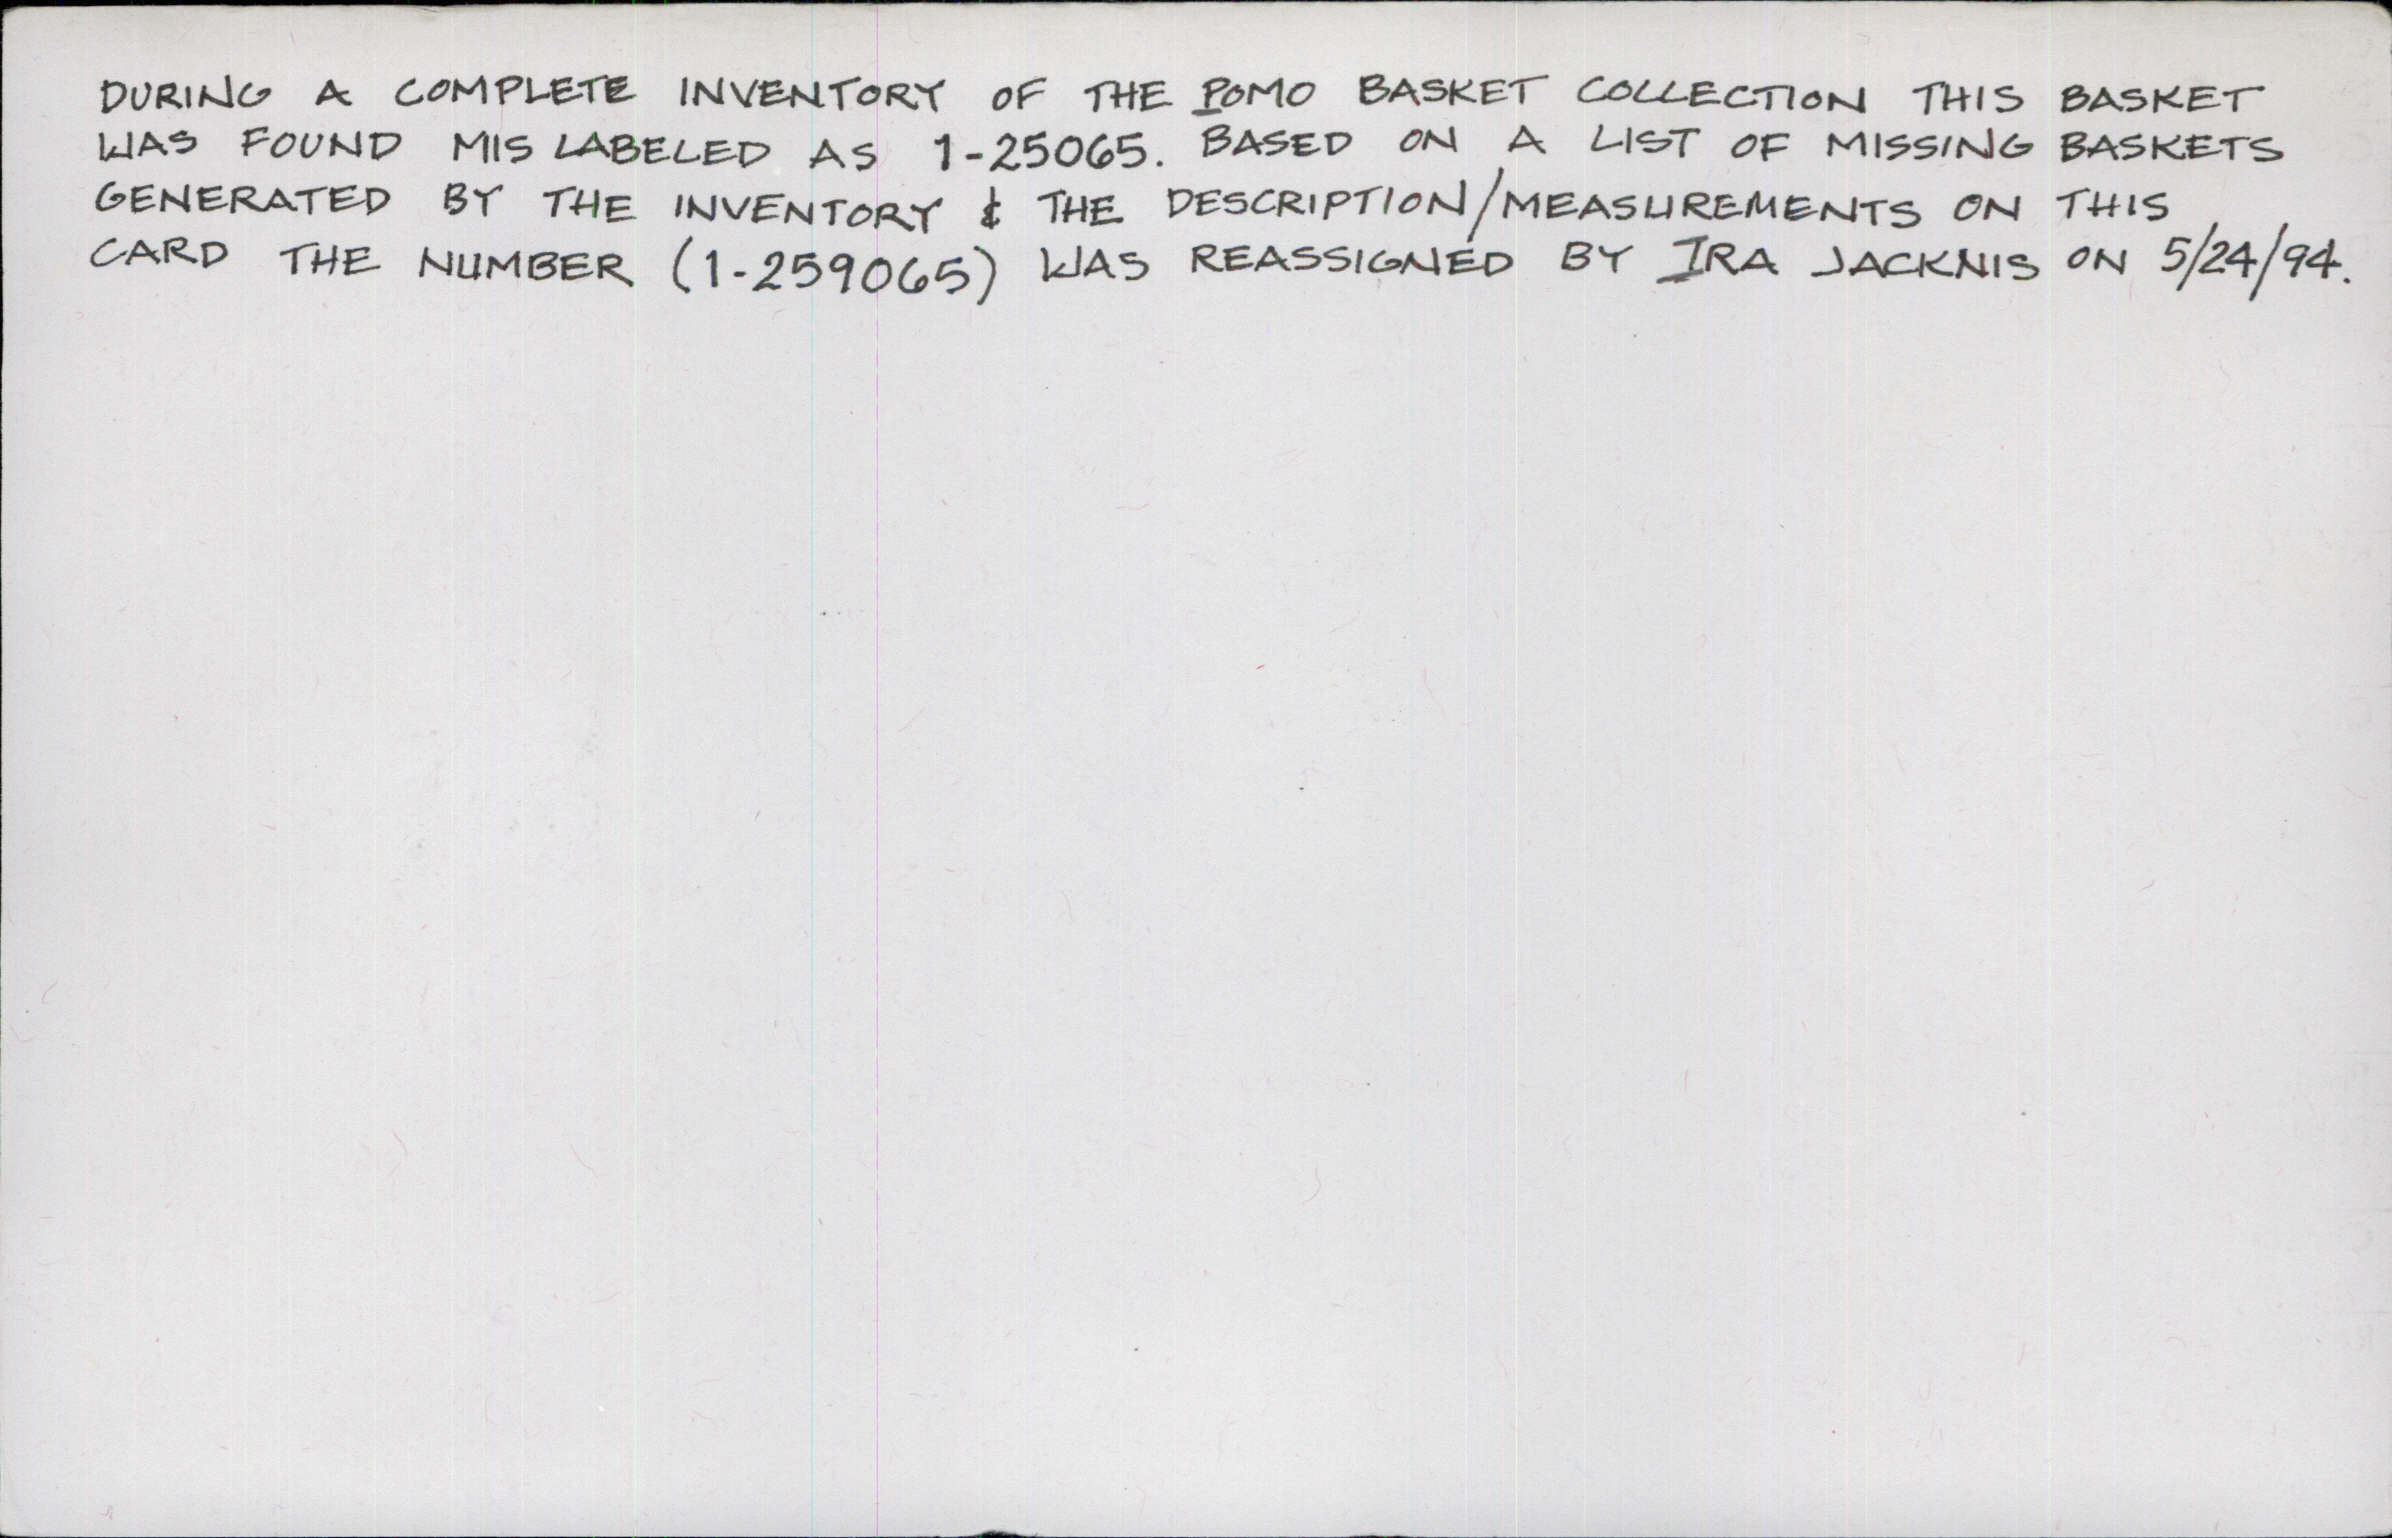 DURING A COMPLETE INVENTORY OF THE POMO BASKET COLLECTION THIS BASKET
WAS FOUND MIS LABELED AS 1-25065. BASED ON A LIST OF MISSING BASKETS
GENERATED BY THE INVENTORY & THE DESCRIPTION/MEASUREMENTS ON THIS
CARD THE NUMBER (1-259065) WAS REASSIGNED BY IRA JACKNIS ON 5/24/94.